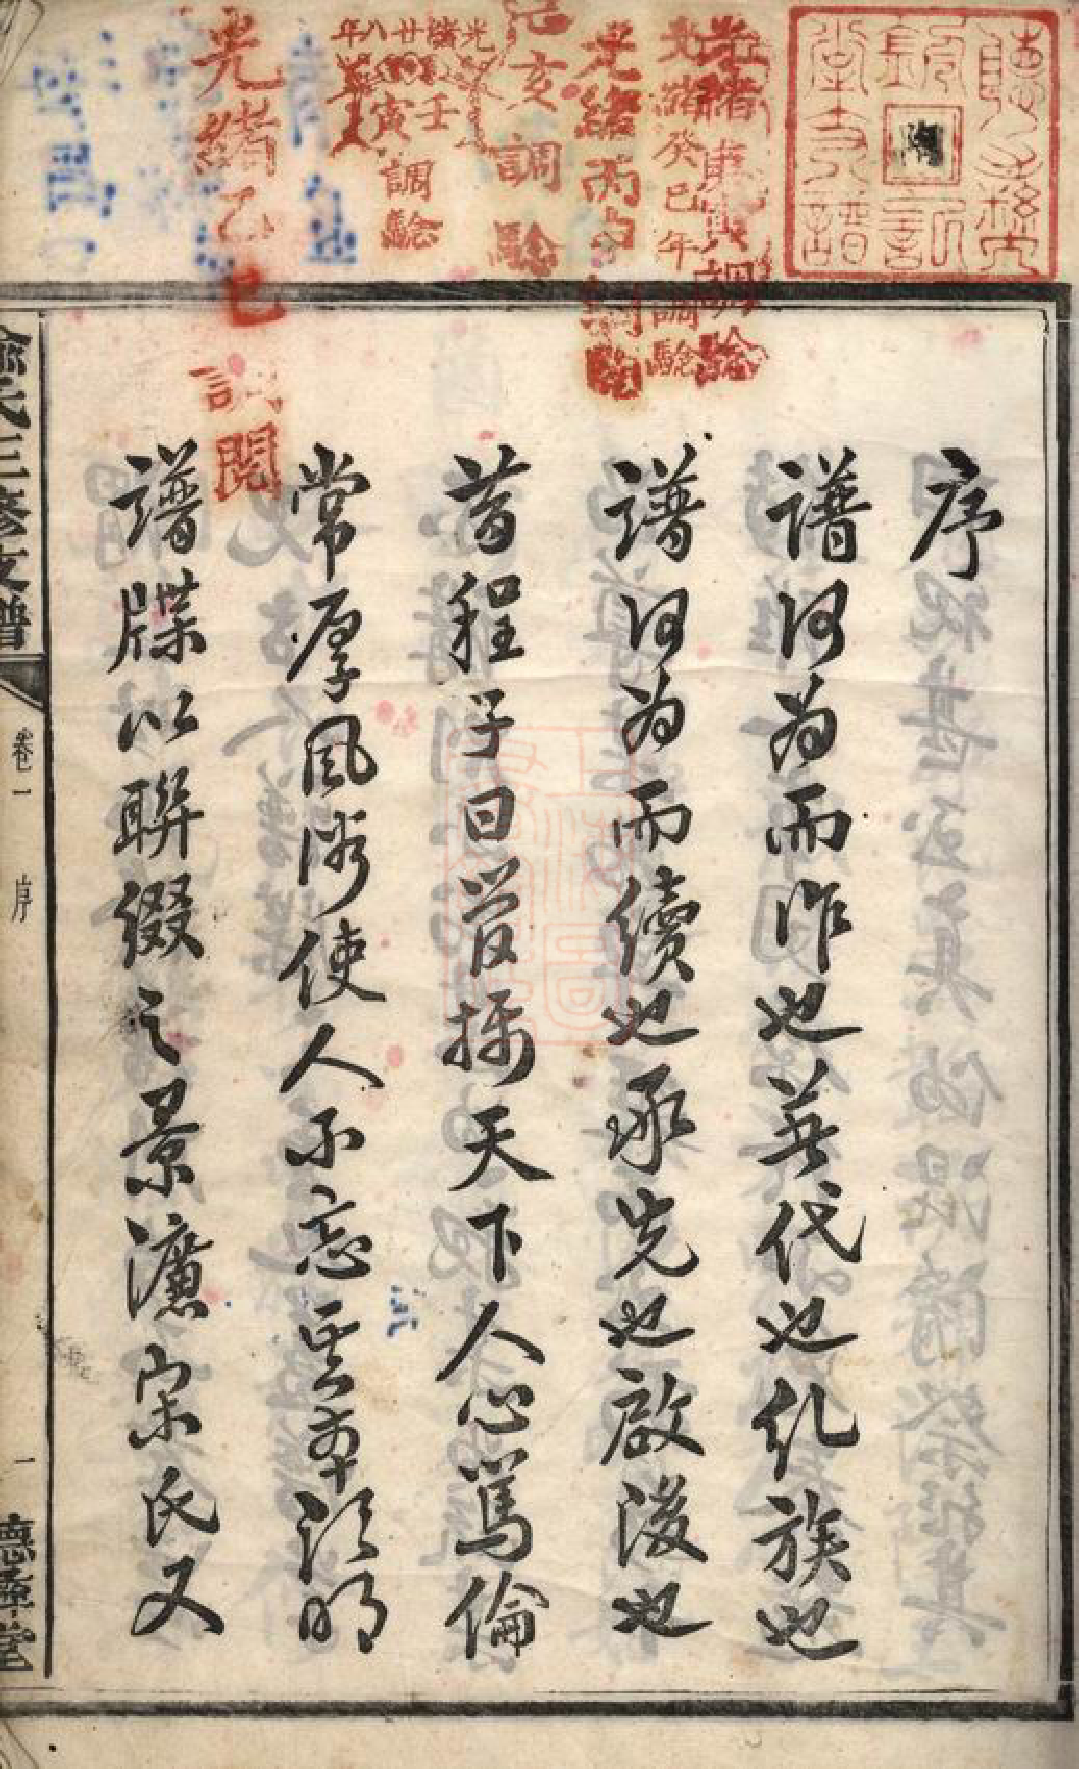 序
譜何為而作也英代也化族也
譜何為而續也承先也啟後也
昔程子曰管攝天下人心篤倫
常厚風俗使人不忘其本須明
譜牒以聯綴之景濂宋氏又
光緒庚寅調驗
光緒癸巳年調驗
光緒丙申調閱
己亥調驗
光緒廿八年
壬寅調驗
光緒乙巳調閱
俞氏三修支譜
卷一
序
一
德遠堂